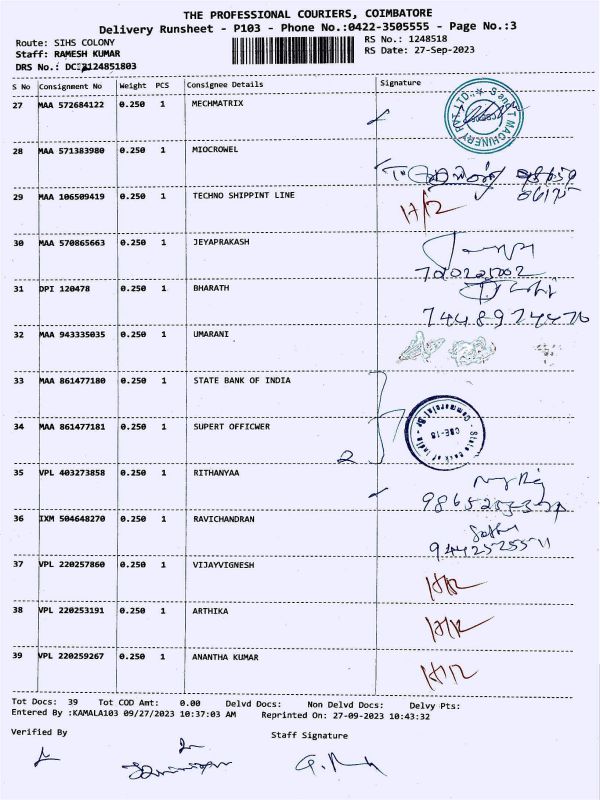 THE PROFESSIONAL COURIERS, COIMBATORE
Delivery Runsheet - P103 - Phone No.:0422-3505555 - Page No.:3
Route: SIHS COLONY
RS No.: 1248518
Staff: RAMESH KUMAR
RS Date: 27-Sep-2023
DRS No.: 124851803
S No Consignment No Weight PCS Consignee Details Signature
27 MAA 572684122 0.250 1 MECHMATRIX
28 MAA 571383980 0.250 1 MIOCROWEL
29 MAA 106509419 0.250 1 TECHNO SHIPPINT LINE
30 MAA 570865663 0.250 1 JEYAPRAKASH
31 DPI 120478 0.250 1 BHARATH
7448974476
32 MAA 943335035 0.250 1 UMARANI
33 MAA 861477180 0.250 1 STATE BANK OF INDIA
34 MAA 861477181 0.250 1 SUPERT OFFICWER
State Bank of India Commercial Br. CBE-18
2
35 VPL 403273858 0.250 1 RITHANYAA
36 IXM 504648270 0.250 1 RAVICHANDRAN
37 VPL 220257860 0.250 1 VIJAYVIGNESH
38 VPL 220253191 0.250 1 ARTHIKA
39 VPL 220259267 0.250 1 ANANTHA KUMAR
Tot Docs: 39 Tot COD Amt: 0.00 Delvd Docs: Non Delvd Docs: Delvy Pts:
Entered By :KAMALA103 09/27/2023 10:37:03 AM Reprinted On: 27-09-2023 10:43:32
Verified By Staff Signature